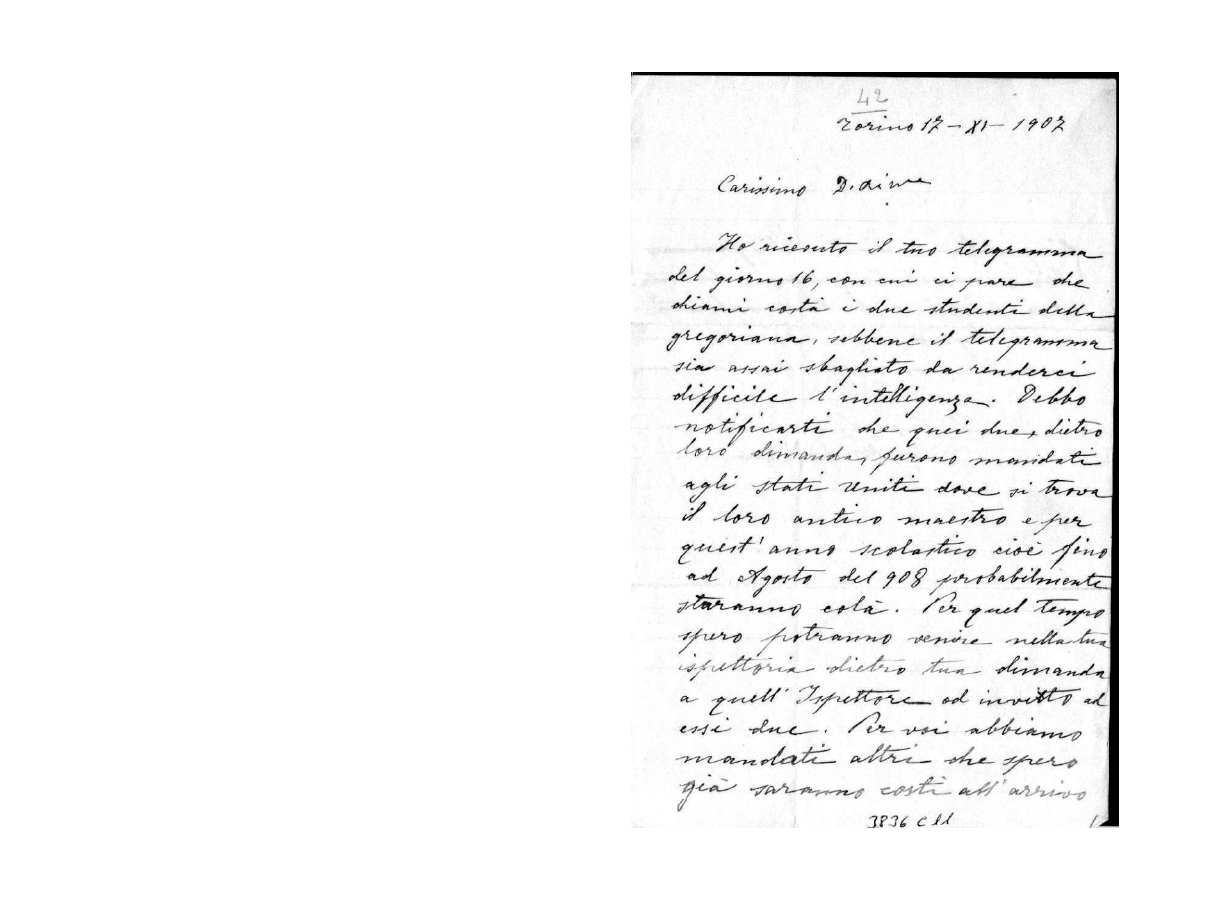 42
Torino 17 - XI - 1907
Carissimo D. Aime
Ho ricevuto il tuo telegramma
del giorno 16, con cui ci pare che
chiami costà i due studenti della
gregoriana, sebbene il telegramma
sia assai sbagliato da renderci
difficile l'intelligenza. Debbo
notificarti che quei due, dietro
loro dimanda, furono mandati
agli Stati Uniti dove si trova
il loro antico maestro e per
quest'anno scolastico cioè fino
ad Agosto del 908 probabilmente
staranno colà. Per quel tempo
spero potranno venire nella tua
ispettoria dietro tua dimanda
a quell'Ispettore od invitto ad
essi due. Per voi abbiamo
mandati altri che spero
già saranno costì all'arrivo
3836 C 11